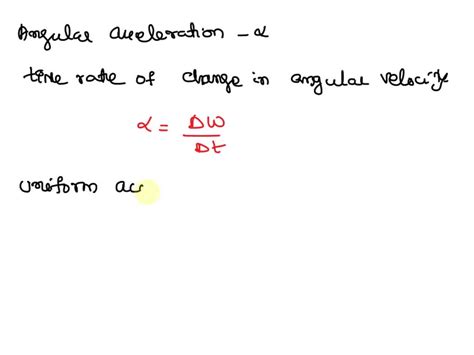 Angular acceleration - α
time rate of change in angular velocity
α = Δω / Δt
uniform acc